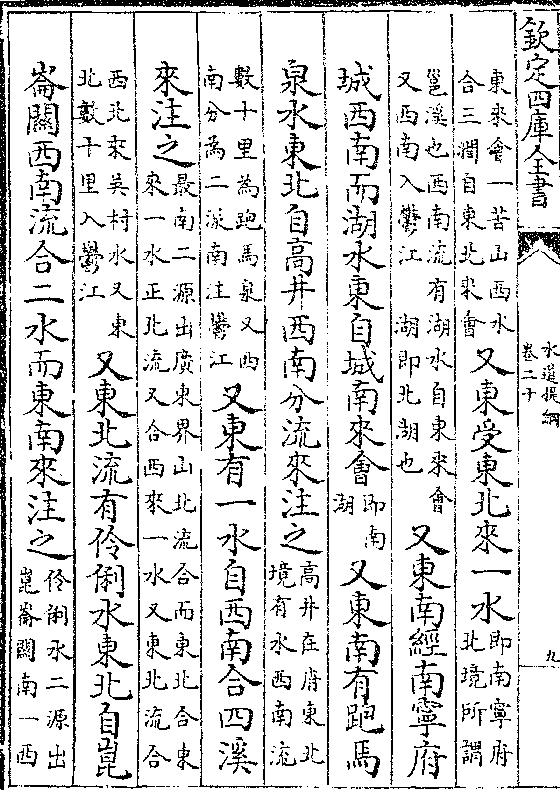 欽定四庫全書
水道提綱
卷二十
九
東來會一苦山西水
合三澗自東北來會
又東受東北來一水
即南寧府
北境所謂
邕溪也西南流有湖水自東來會
又西南入鬱江 湖即北湖也
又東南經南寧府
城西南而湖水東自城南來會
即南
湖
又東南有跑馬
泉水東北自高井西南分流來注之
高井在府東北
境有水西南流
數十里為跑馬泉又西
南分為二派南注鬱江
又東有一水自西南合四溪
來注之
最南二源出廣東界山北流合而東北合東
來一水正北流又合西來一水又東北流合
西北來吳村水又東
北數十里入鬱江
又東北流有伶俐水東北自崑
崙關西南流合二水而東南來注之
伶俐水二源出
崑崙關南一西